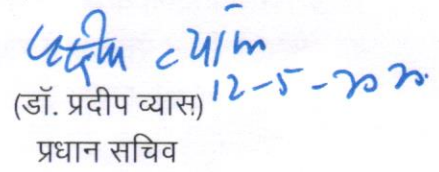 प्रदीप व्यास
12-5-2020
(डॉ. प्रदीप व्यास)
प्रधान सचिव